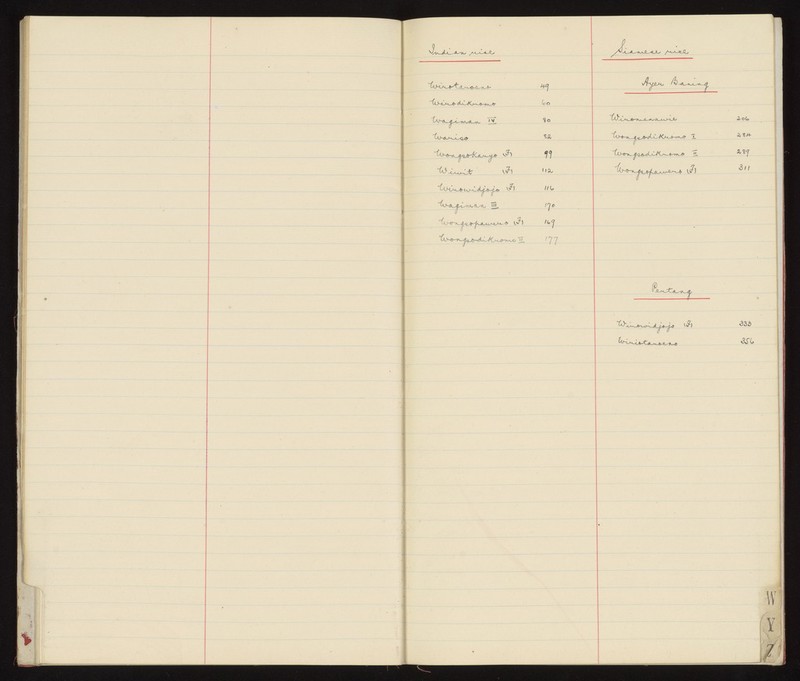 Indian rice
Winoterono 49
Wirodikromo 60
Wagiman IV 80
Wariso 82
Wongsokargo 99
Wiwit 112
Wirowidjojo 116
Wagiman III 170
Wongsopawiro 169
Wongsodikromo II 177
Siamese rice
Ayer Basing
206
Wongsodikromo I
Wongsodikromo II 289
Wongsopawiro 311
Pentang
Wirowidjojo 333
356
W
Y
Z